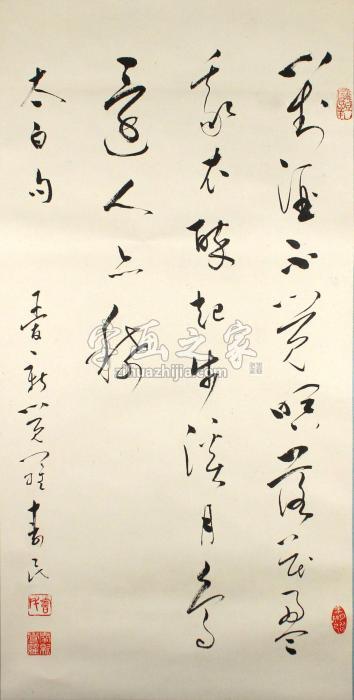 對酒不覺暝落花盈
我衣醉起步溪月鳥
還人亦稀
太白句
愛新覺羅
字画之家
zihuazhijia.com